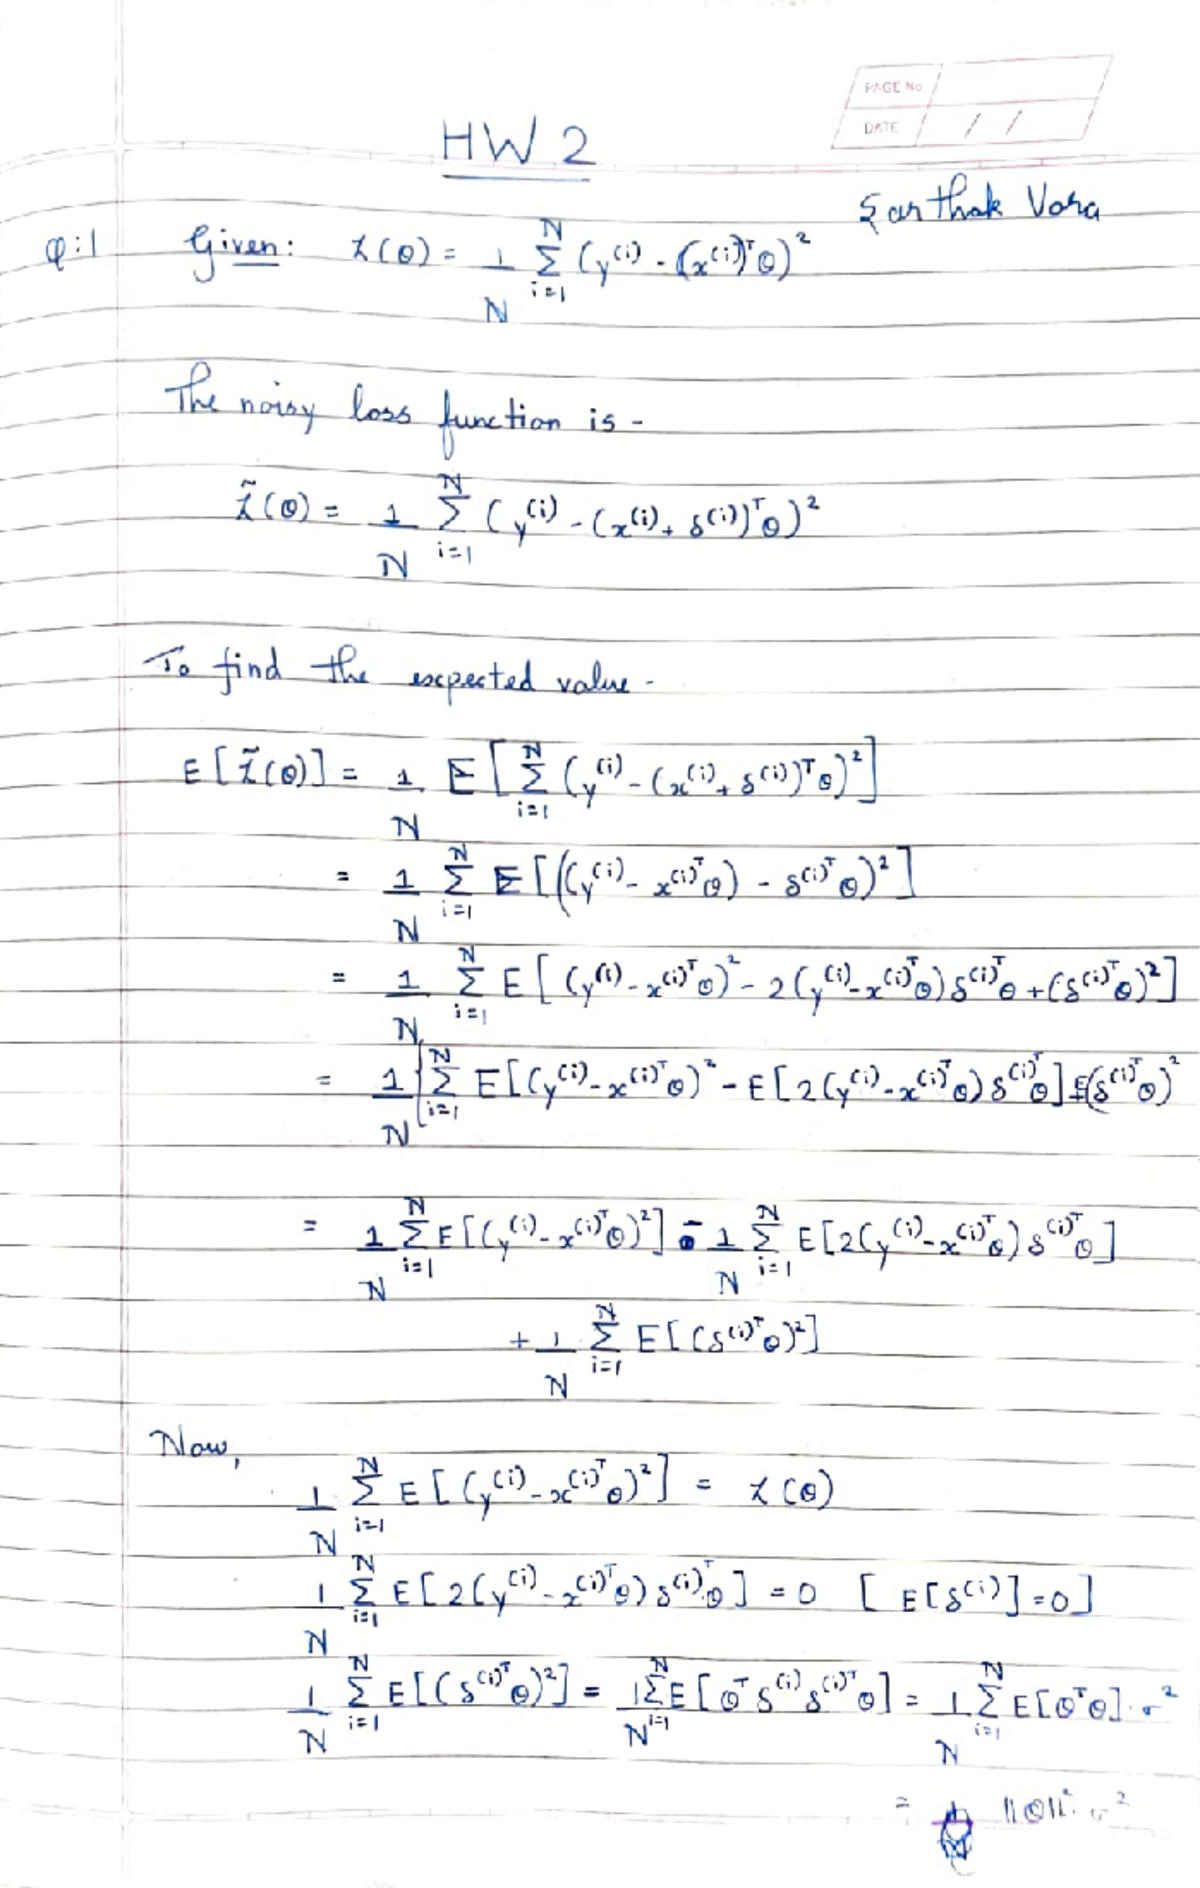 PAGE No.
DATE / /
HW 2
Sarthak Vora
Q:1 Given: L(θ) = 1/N Σ_{i=1}^{N} (y^(i) - (x^(i))^T θ)^2
The noisy loss function is -
L̃(θ) = 1/N Σ_{i=1}^{N} (y^(i) - (x^(i) + δ^(i))^T θ)^2
To find the expected value -
E[L̃(θ)] = 1/N E[Σ_{i=1}^{N} (y^(i) - (x^(i) + δ^(i))^T θ)^2]
= 1/N Σ_{i=1}^{N} E[((y^(i) - x^(i)^T θ) - δ^(i)^T θ)^2]
= 1/N Σ_{i=1}^{N} E[(y^(i) - x^(i)^T θ)^2 - 2(y^(i) - x^(i)^T θ) δ^(i)^T θ + (δ^(i)^T θ)^2]
= 1/N [Σ_{i=1}^{N} E[(y^(i) - x^(i)^T θ)^2 - E[2(y^(i) - x^(i)^T θ) δ^(i)^T θ] + E(δ^(i)^T θ)^2
= 1/N Σ_{i=1}^{N} E[(y^(i) - x^(i)^T θ)^2] - 1/N Σ_{i=1}^{N} E[2(y^(i) - x^(i)^T θ) δ^(i)^T θ]
+ 1/N Σ_{i=1}^{N} E[(δ^(i)^T θ)^2]
Now,
1/N Σ_{i=1}^{N} E[(y^(i) - x^(i)^T θ)^2] = L(θ)
1/N Σ_{i=1}^{N} E[2(y^(i) - x^(i)^T θ) δ^(i)^T θ] = 0 [E[δ^(i)] = 0]
1/N Σ_{i=1}^{N} E[(δ^(i)^T θ)^2] = 1/N Σ_{i=1}^{N} E[θ^T δ^(i) δ^(i)^T θ] = 1/N Σ_{i=1}^{N} E[θ^T θ] · σ^2
= ||θ||^2 · σ^2